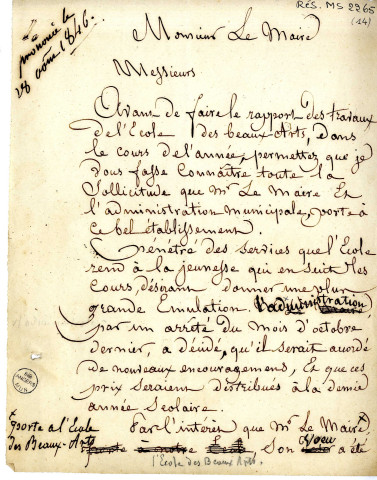 RÉS. MS 2265
(14)
prononcé le
28 août 1846.
Monsieur Le Maire
Messieurs
Avant de faire le rapport des travaux
de l'Ecole des beaux-Arts, dans
le cours de l'année, permettez que je
vous fasse Connaître toute la
Sollicitude que Mr Le Maire Et
l'administration municipale, porte à
ce bel établissement.
Pénétré des services que l'Ecole
rend à la jeunesse qui en suit les
Cours, désirant donner une plus
grande Emulation. l'administration
par un arrêté du mois d'octobre
dernier, a décidé, qu'il serait accordé
de nouveaux encouragemens, Et que ces
prix seraient distribués à la demie
année Scolaire.
Par l'intérêt que Mr Le Maire
porte a l'Ecole
des Beaux-Arts
porte à notre Ecole, Son voeu a été
l'Ecole des Beaux Arts.